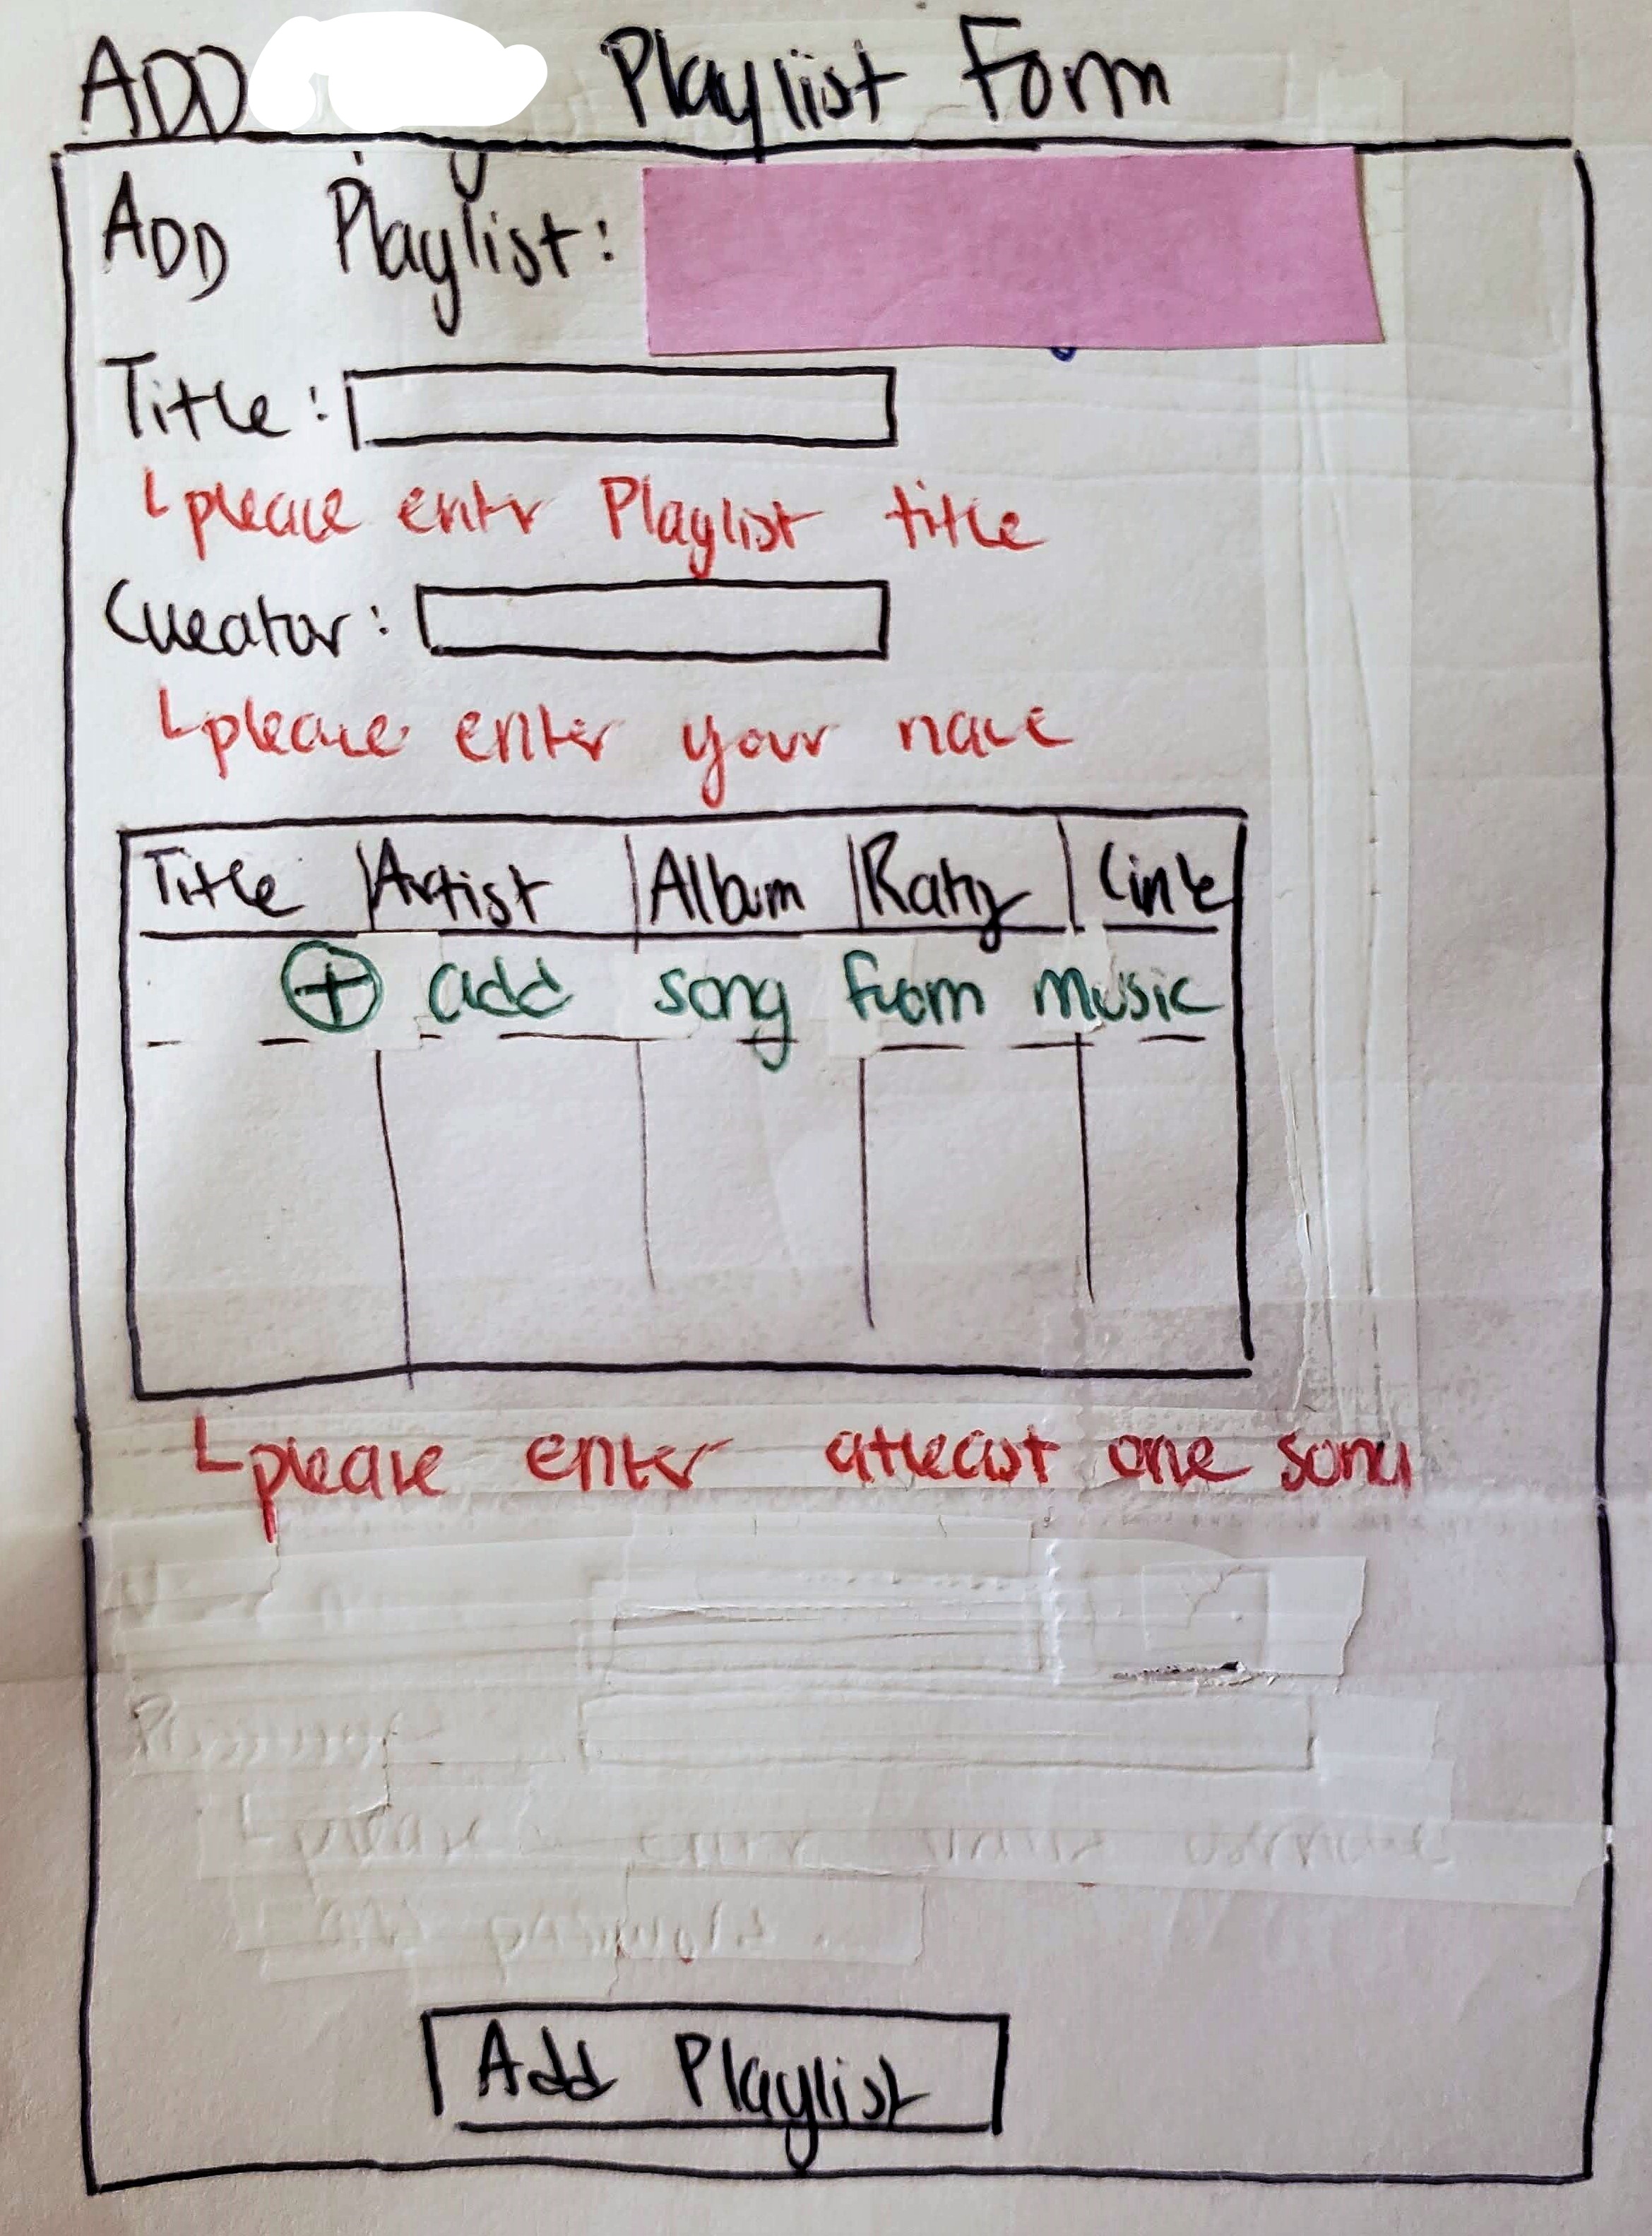 ADD Playlist Form
ADD Playlist:
Title:
please enter Playlist title
Creator:
please enter your name
Title Artist Album Rating Link
+ add song from music
please enter atleast one song
please enter
password
Add Playlist